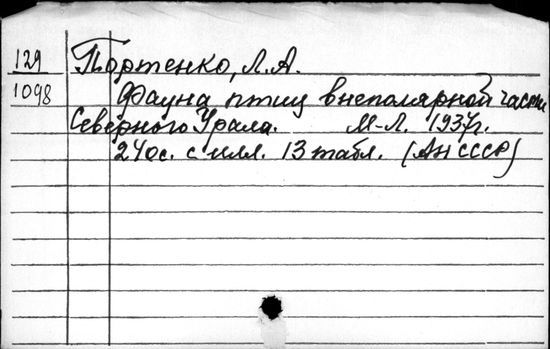 129 Портенко, Л.А.
1098 Фауна птиц внеполярной части
Северного Урала. М-Л. 1937г.
240с. с илл. 13 табл. (АН СССР)